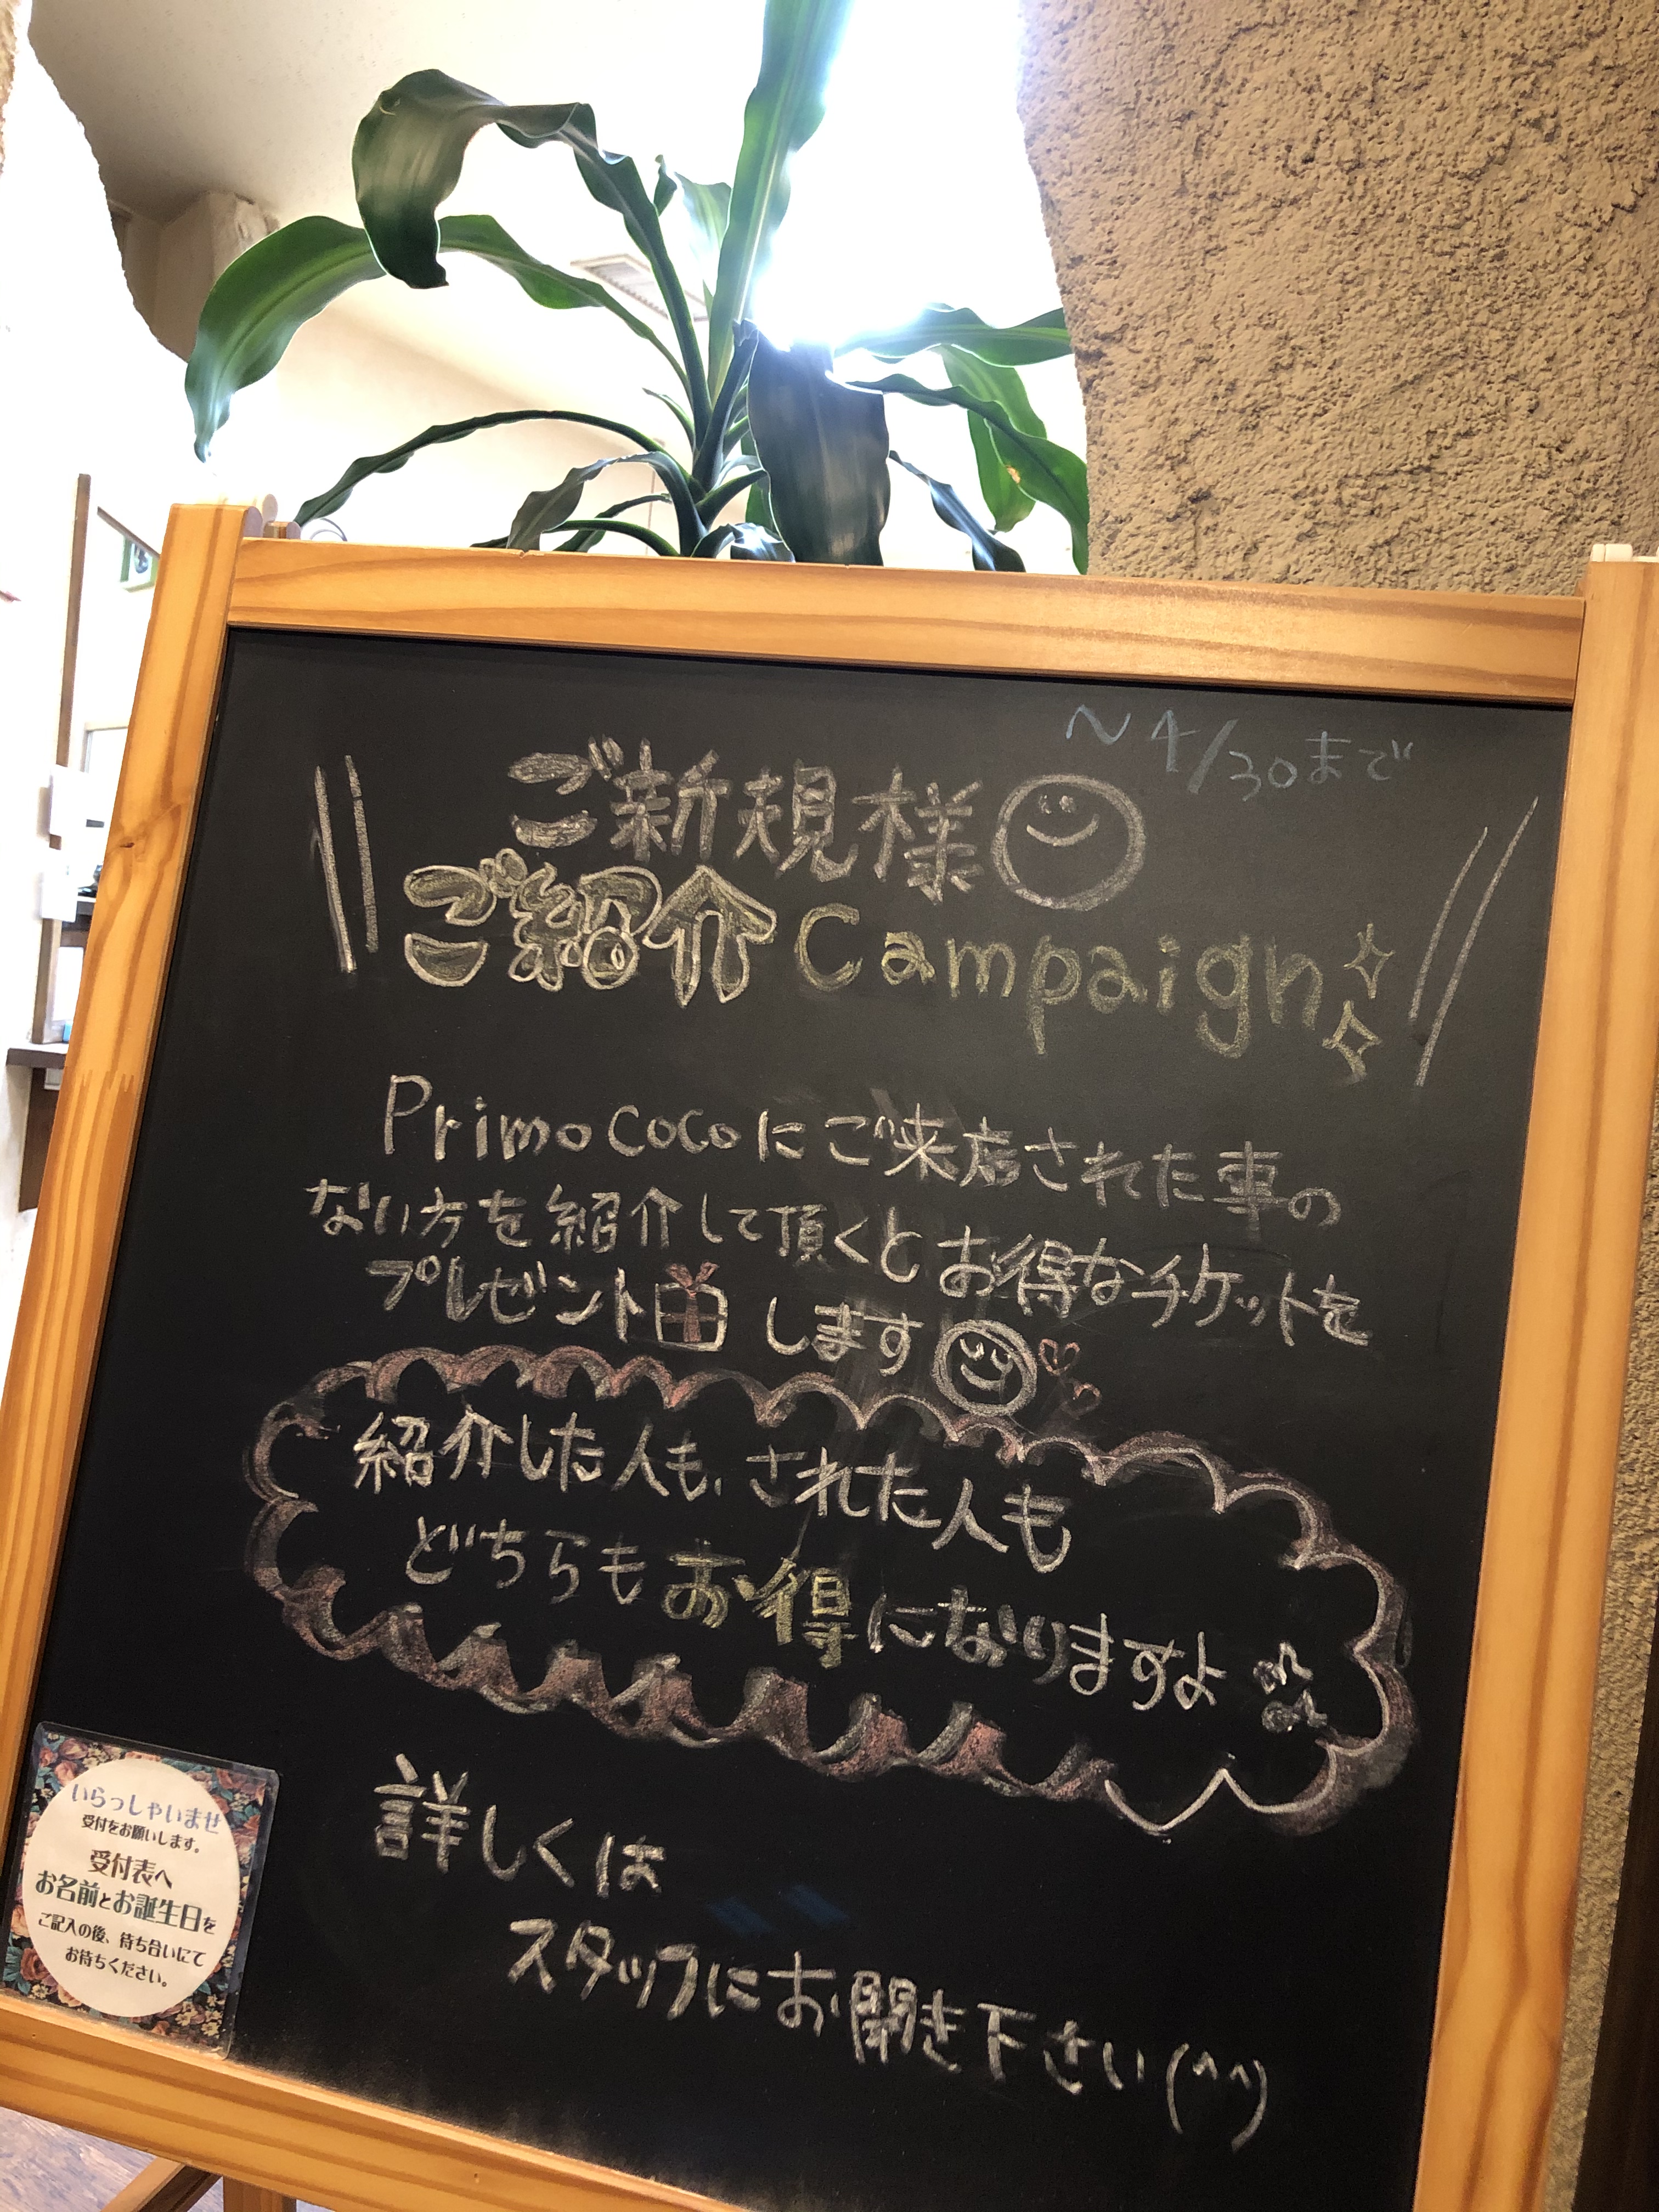 ~4/30まで
ご新規様
ご紹介 Campaign
Primo cocoにご来店された事の
ない方を紹介して頂くとお得なチケットを
プレゼントします
紹介した人も、された人も
どちらもお得になりますよ
詳しくは
スタッフにお聞き下さい(^^)
いらっしゃいませ
受付をお願いします。
受付表へ
お名前とお誕生日を
ご記入の後、待ち合いにて
お待ちください。